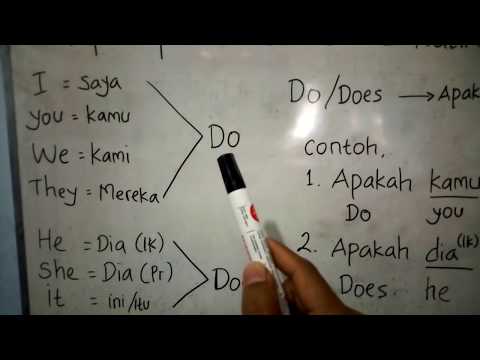 I = saya
you = kamu
We = kami
They = Mereka
Do
He = Dia (lk)
She = Dia (Pr)
it = ini/itu
Do
Do/Does → Apak
Contoh,
1. Apakah kamu
Do you
2. Apakah dia (lk)
Does he